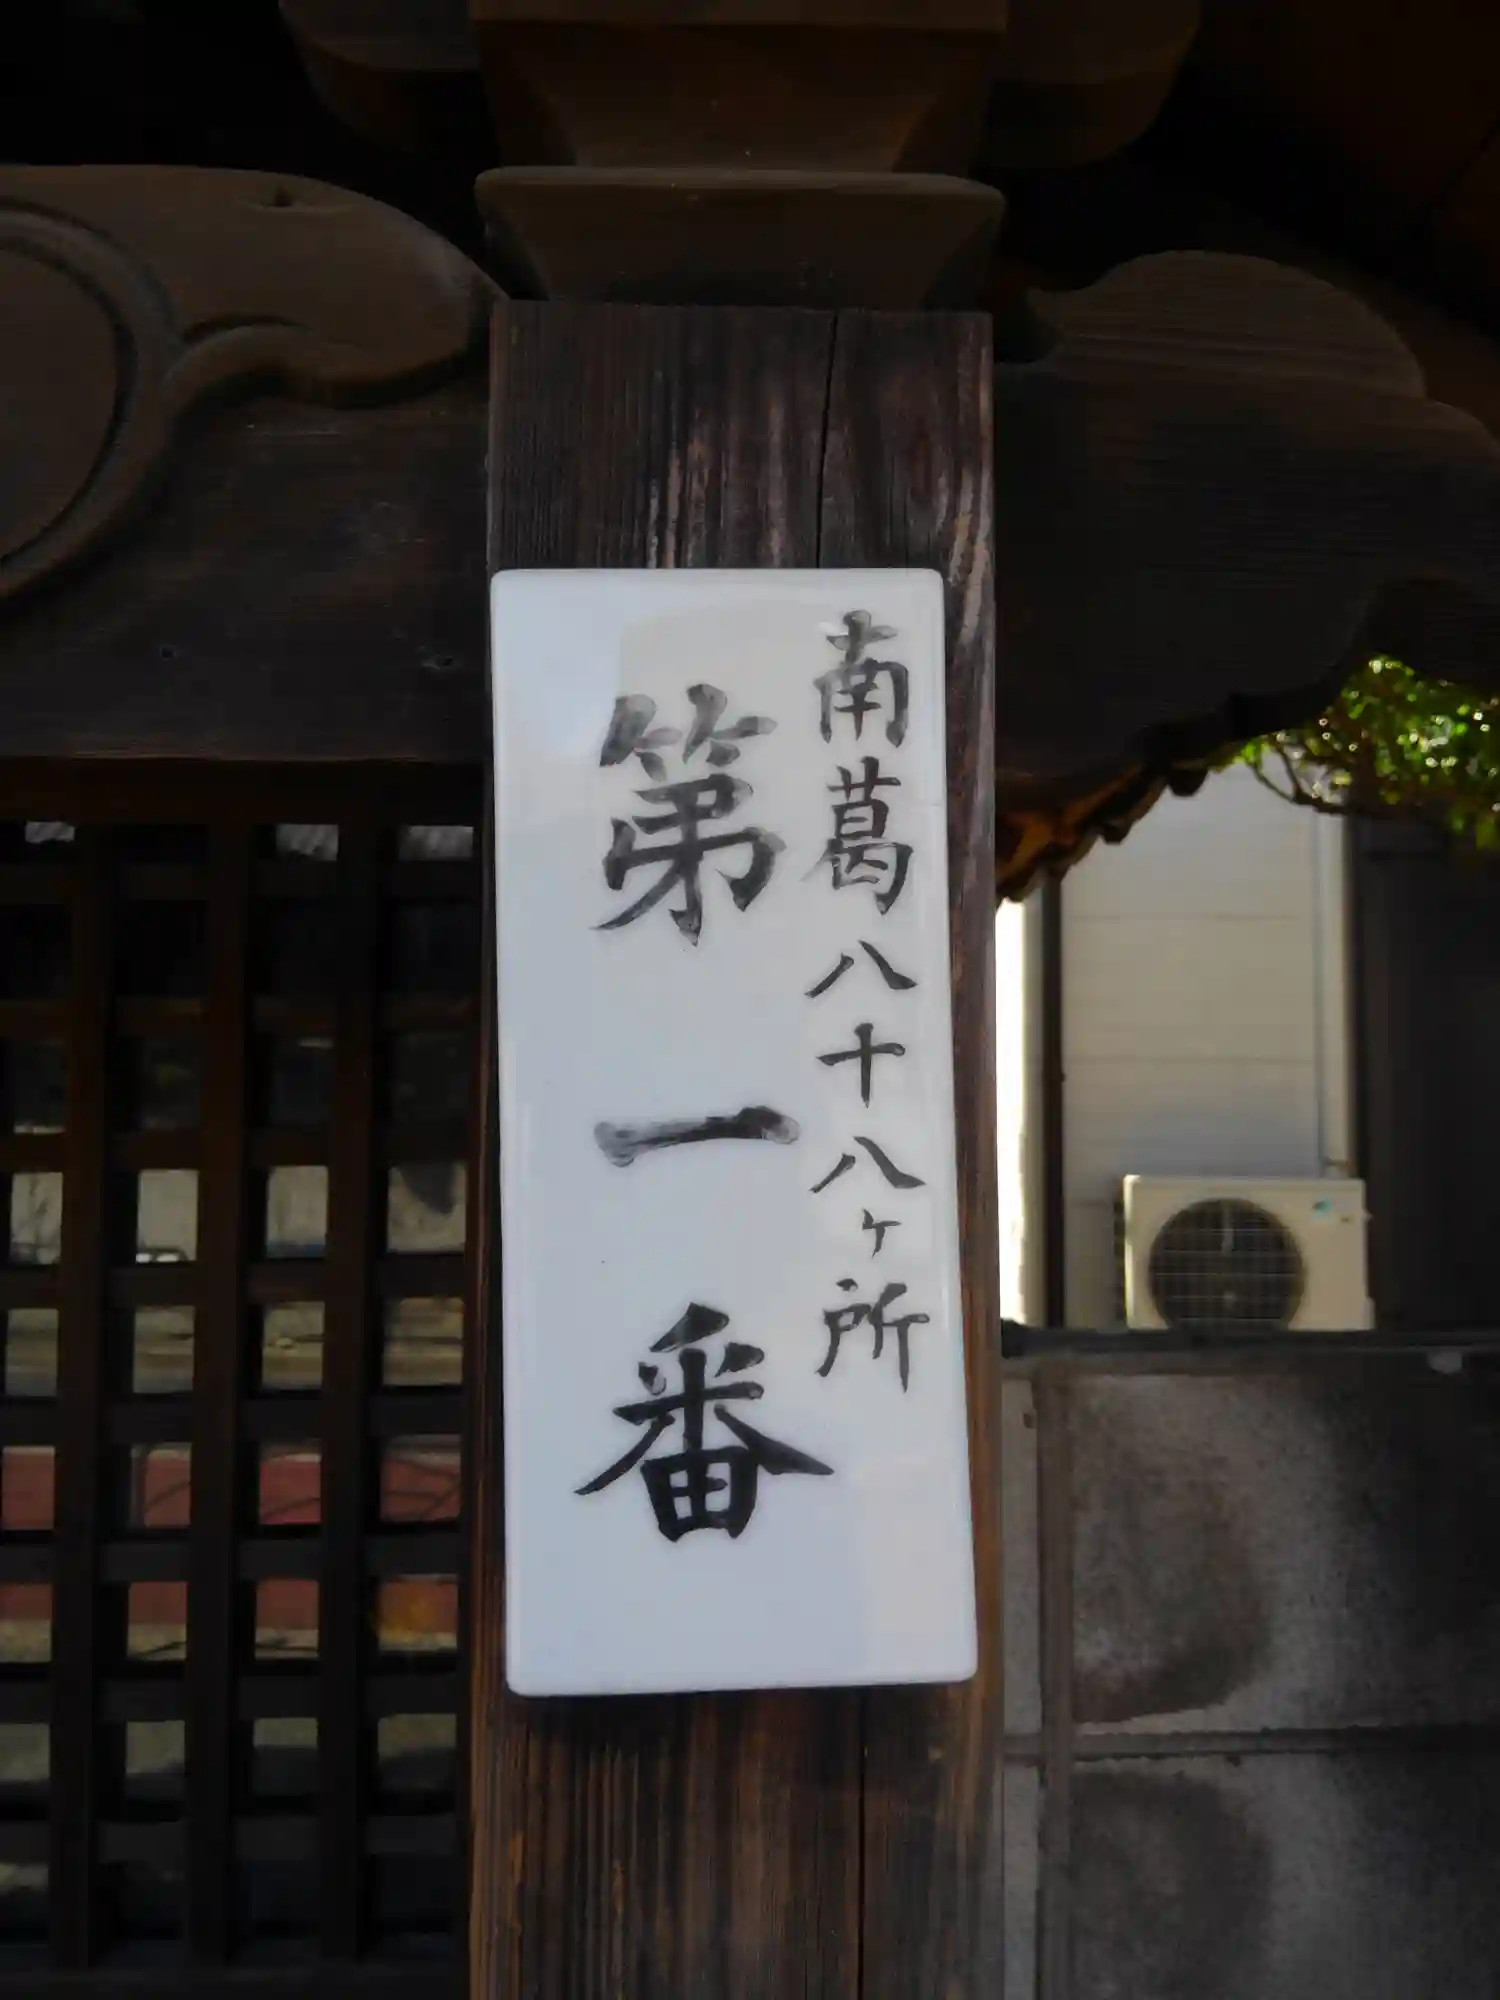 南葛八十八ヶ所
第一番